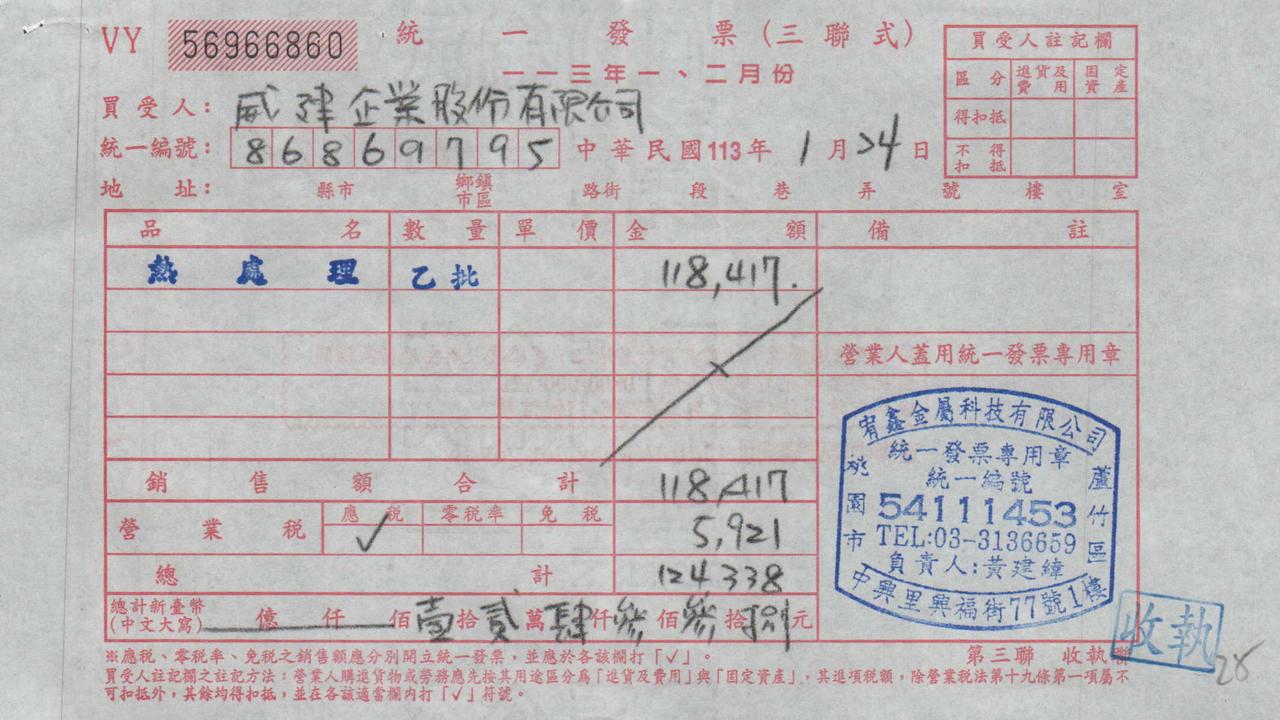 VY 56966860 統一發票(三聯式)
一一三年一、二月份
買受人註記欄
區分 進貨及費用 固定資產
得扣抵
不得扣抵
買受人:威建企業股份有限公司
統一編號:86869795 中華民國113年1月24日
地址: 縣市 鄉鎮市區 路街 段 巷 弄 號 樓 室
品名 數量 單價 金額 備註
熱處理 乙批 118,417.
營業人蓋用統一發票專用章
銷售額合計 118,417
營業稅 應稅 ✓ 零稅率 免稅 5,921
總計 124338
總計新臺幣(中文大寫) 億 仟 佰 壹拾 貳萬 肆仟 參佰 參拾 捌元
宥鑫金屬科技有限公司
統一發票專用章
統一編號
54111453
TEL:03-3136659
負責人:黃建緯
桃園市
蘆竹區
中興里興福街77號1樓
※應稅、零稅率、免稅之銷售額應分別開立統一發票,並應於各該欄打「✓」。
第三聯 收執聯
收執
28
買受人註記欄之註記方法:營業人購進貨物或勞務應先按其用途區分為「進貨及費用」與「固定資產」,其進項稅額,除營業稅法第十九條第一項屬不
可扣抵外,其餘均得扣抵,並在各該適當欄內打「✓」符號。